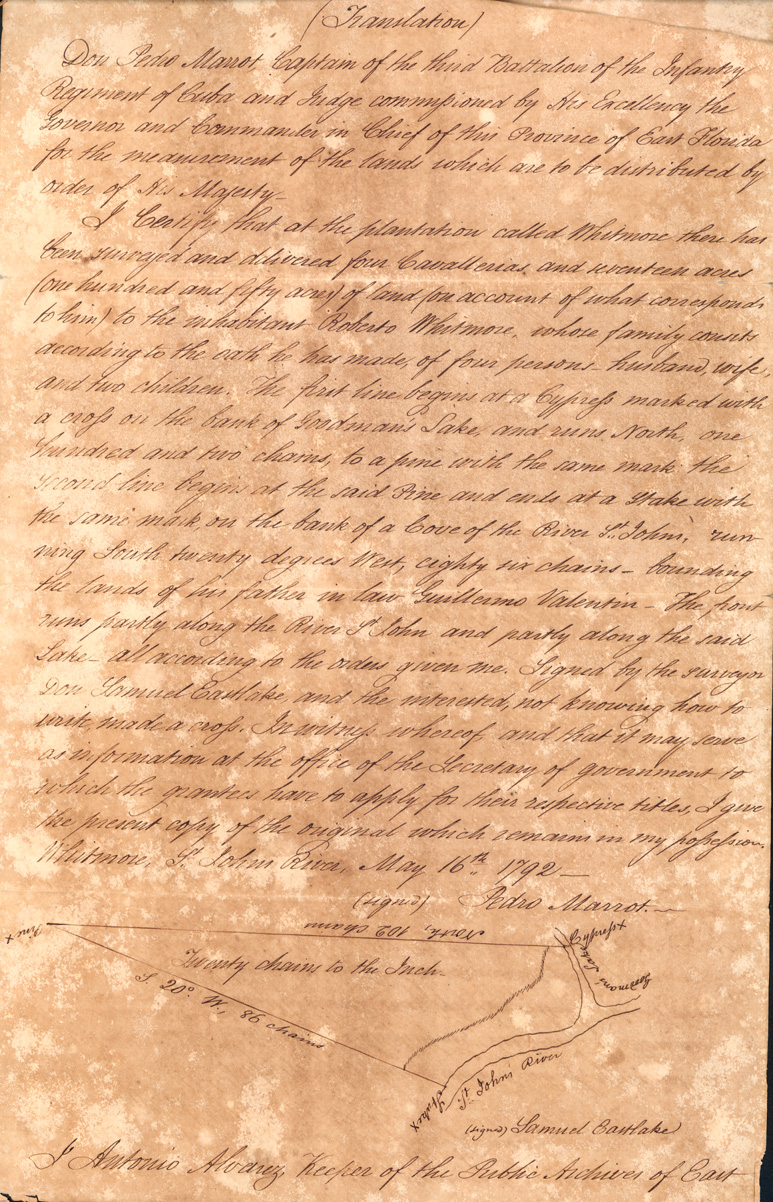 (Translation)
Don Pedro Marrot Captain of the third Battalion of the Infantry
Regiment of Cuba and Judge commissioned by His Excellency the
Governor and Commander in Chief of this Province of East Florida
for the measurement of the lands which are to be distributed by
order of His Majesty—
I Certify that at the plantation called Whitmore there has
been surveyed and delivered four Cavallerias, and seventeen acres
(one hundred and fifty acres) of land (on account of what corresponds
to him) to the inhabitant Roberto Whitmore, whose family consists
according to the oath he has made, of four persons— husband, wife,
and two children. The first line begins at a Cypress marked with
a cross on the bank of Gordman's Lake, and runs North, one
hundred and two chains, to a pine with the same mark the
second line begins at the said Pine and ends at a stake with
the same mark, on the bank of a Cove of the River St. John, run-
ning South twenty degrees West, eighty six chains— bounding
the lands of his father in law Guillermo Valentin— The front
runs partly along the River St John and partly along the said
Lake— all according to the orders given me. Signed by the surveyor
Don Samuel Eastlake, and the interested, not knowing how to
write, made a cross. In witness whereof, and that it may serve
as information at the office of the Secretary of government to
which the grantees have to apply for their respective titles, I give
the present copy of the original which remains in my possession.
Whitmore, St. Johns River, May 16th. 1792—
(signed) Pedro Marrot.—
Pine x
North, 102 chains
Cypress x
Lake
Twenty chains to the Inch—
S. 20° W., 86 chains
Stake x
St. John's River
(signed) Samuel Eastlake
I Antonio Alvarez, Keeper of the Public Archives of East